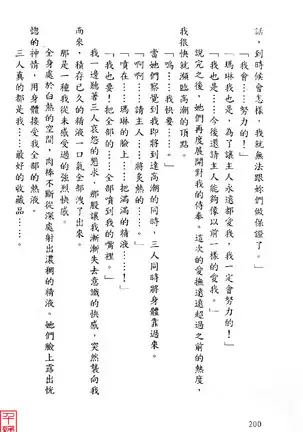 話，到時候會怎樣，我就無法跟妳們做保證了。」
「我會……努力的！」
「瑪琳我也是，為了讓主人永遠都愛我，我一定會努力的！」
「我也是……今後還請主人能夠像以前一樣的愛我。」
說完之後，她們再度展開對我的侍奉。這次的愛撫遠遠超過之前的熱度，
我很快就瀕臨高潮的頂點。
「嗚……我快要……」
當她們察覺到我即將到達高潮的同時，三人同時將身體靠過來。
「啊啊……請主人……將炙熱的……」
「噴在……瑪琳的臉上……把滿滿的精液……！」
「我也要！把全部的……全部噴到我的嘴裡。」
我一邊聽著三人哀怨的懇求，那股讓我漸漸失去意識的快感，突然襲向我
而來，積存已久的精液一口氣全部洩了出來。
那是一種我從未感受過的強烈快感。
全身處於白熱的空間，肉棒不斷從深處射出濃稠的精液。她們臉上露出恍
惚的神情，用身體接受我全部的熱液。
三人真的都是我……最好的收藏品……。
200